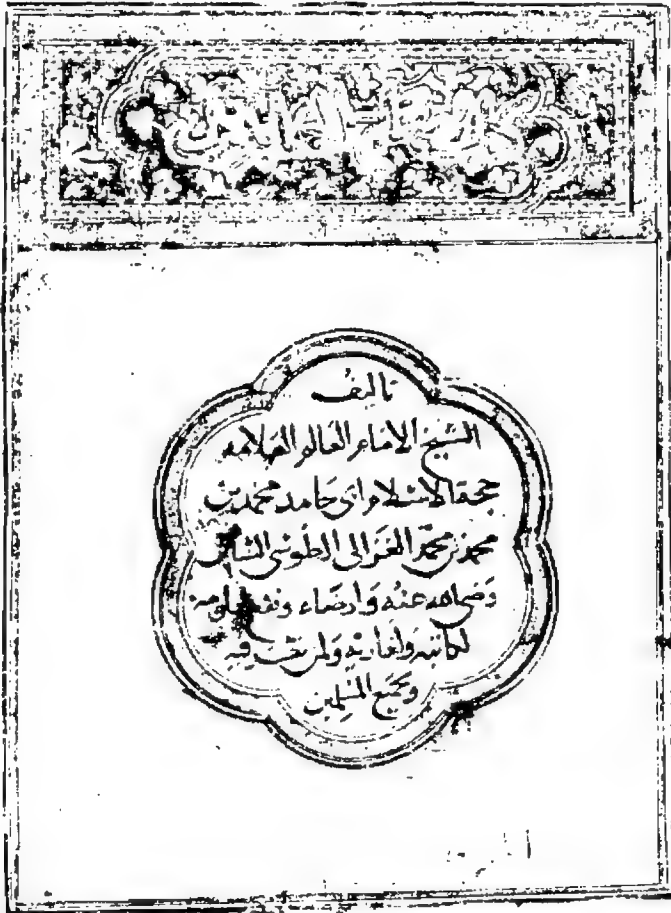 تاليف
الشيخ الامام العالم العلامه
حجة الاسلام ابى حامد محمد بن
محمد بن محمد الغزالى الطوسى
رضى الله عنه وارضاه ونفع بعلومه
لكاتبه ولقاريه ولمن
وجميع المسلمين